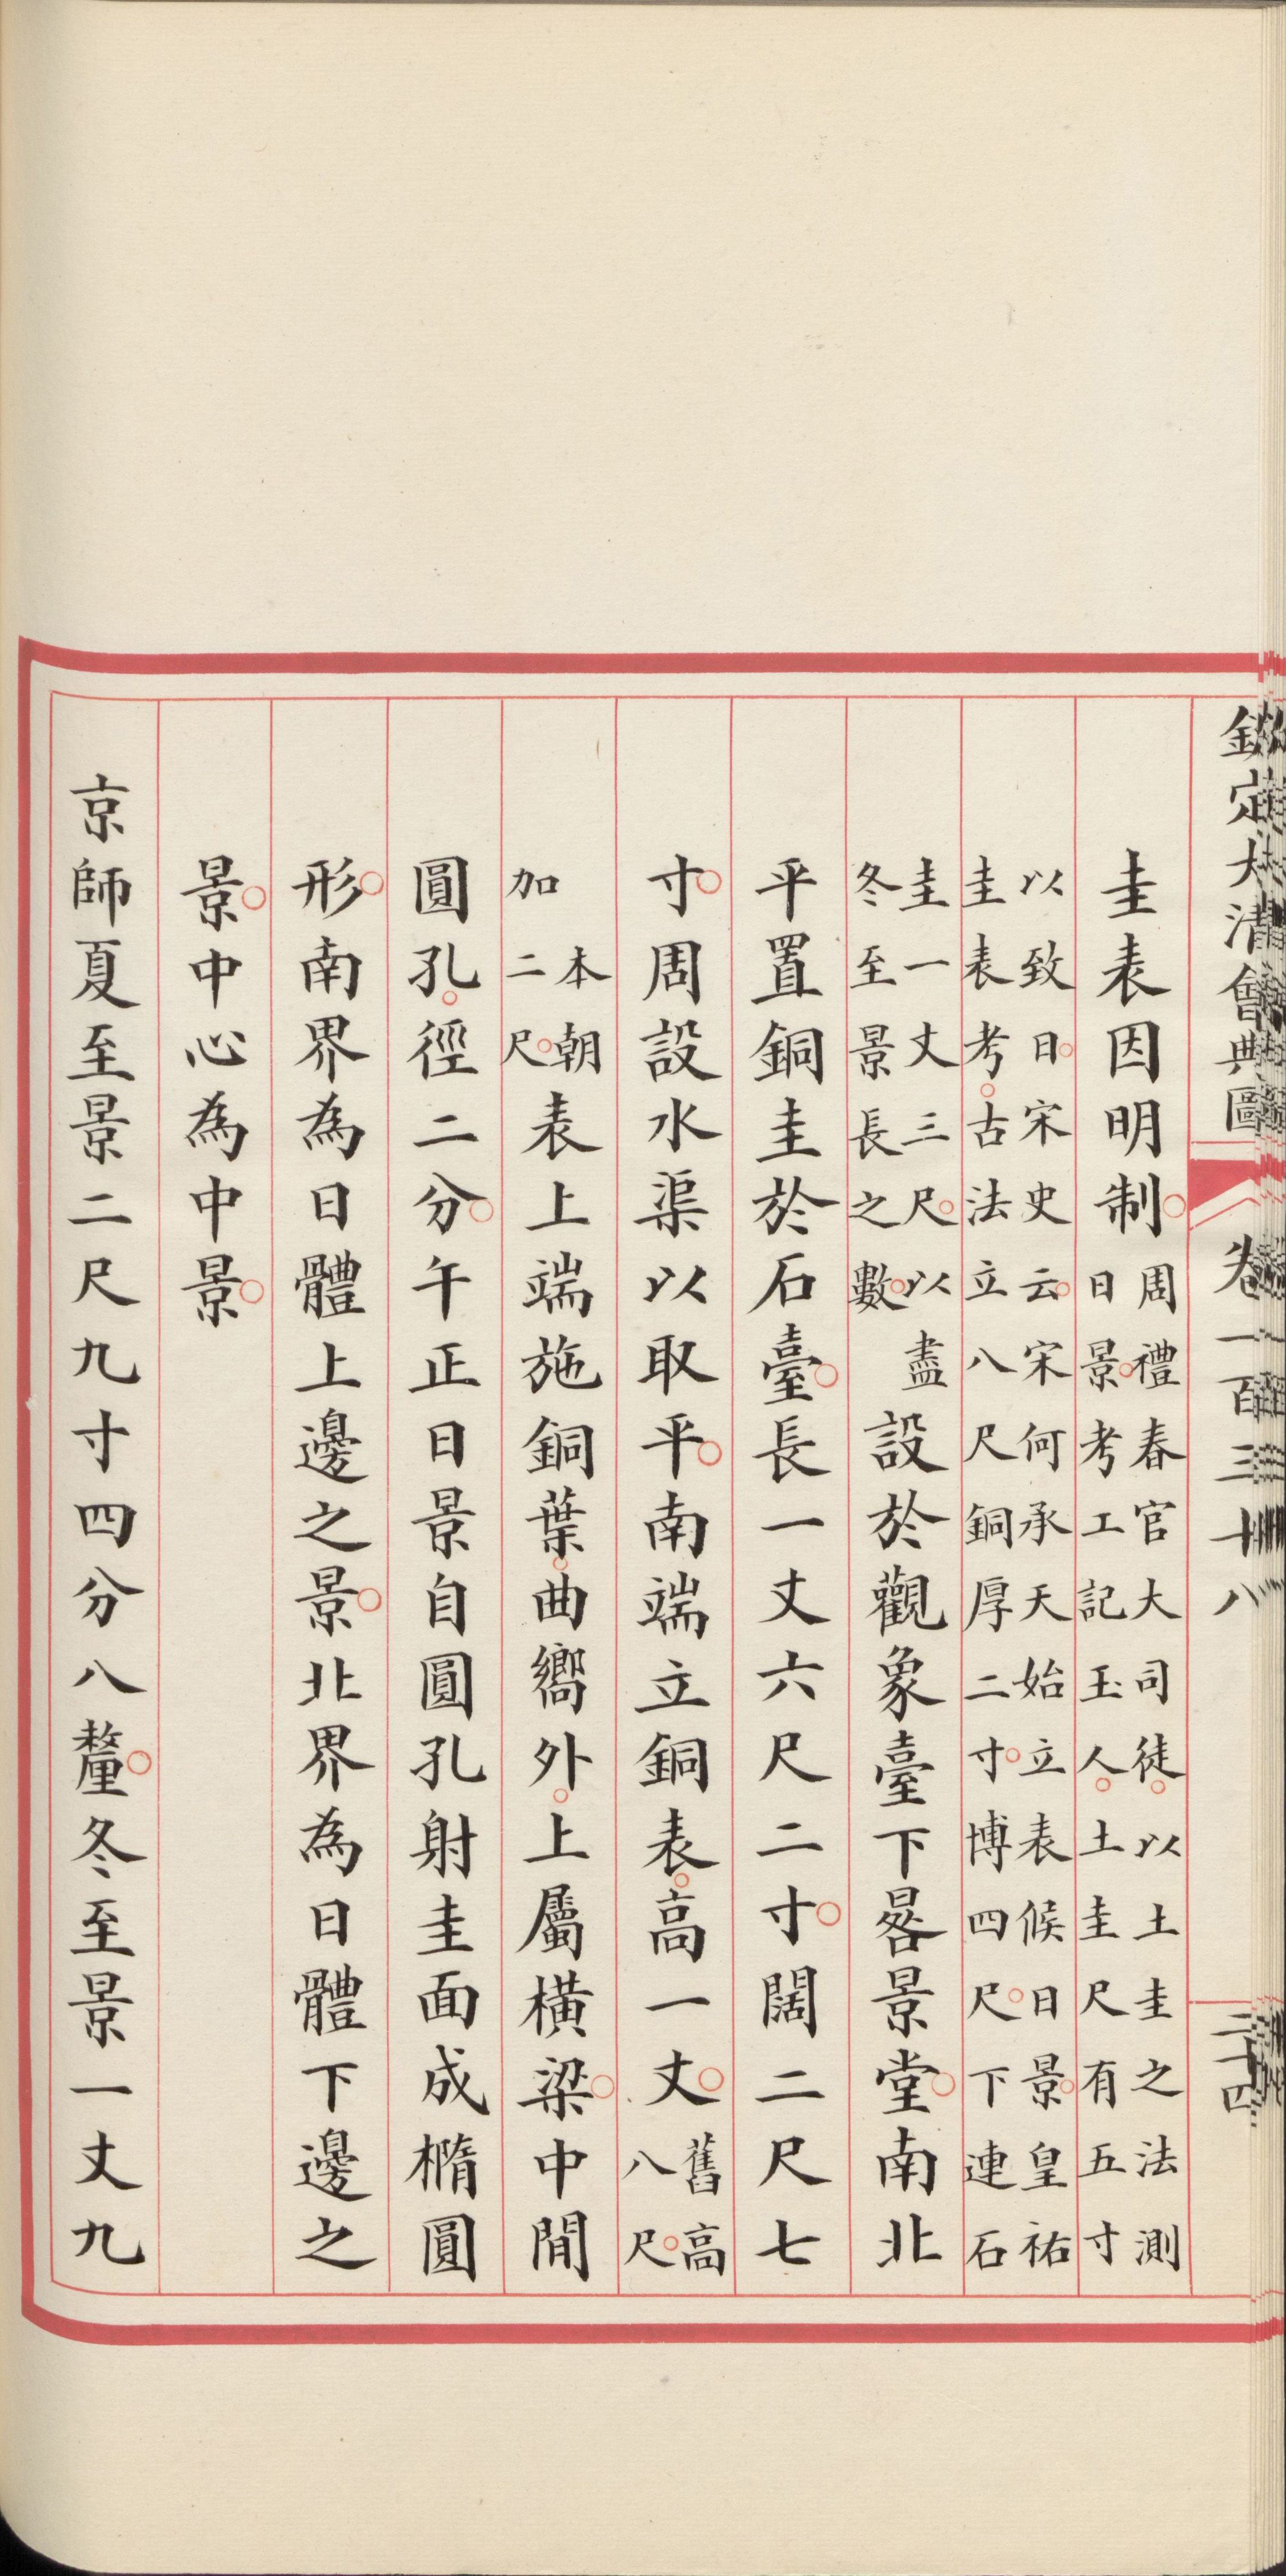 欽定大清會典圖 卷一百三十八 二十四
圭表因明制周禮春官大司徒以土圭之法測日景考工記玉人土圭尺有五寸
以致日宋史云宋何承天始立表候日景皇祐圭表考古法立八尺銅厚二寸博四尺下連石
圭一丈三尺以盡冬至景長之數設於觀象臺下晷景堂南北
平置銅圭於石臺長一丈六尺二寸闊二尺七
寸周設水渠以取平南端立銅表高一丈舊高八尺
本朝加二尺表上端施銅葉曲嚮外上屬橫梁中閒
圓孔徑二分午正日景自圓孔射圭面成橢圓
形南界為日體上邊之景北界為日體下邊之
景中心為中景
京師夏至景二尺九寸四分八釐冬至景一丈九